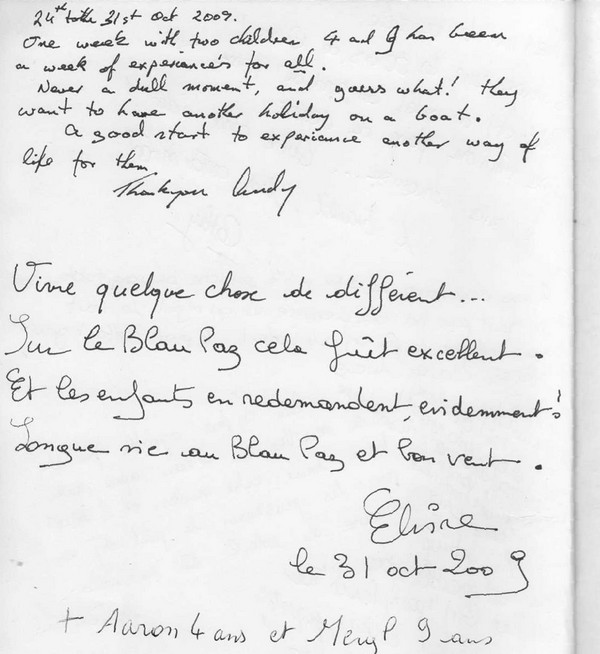 24th to the 31st Oct 2009.
One week with two children 4 and 9 has been
a week of experiance's for all.
Never a dull moment, and guess what! they
want to have another holiday on a boat.
A good start to experiance another way of
life for them
Thankyou
Vivre quelque chose de différent...
Sur le Blau Paz cela fuît excellent.
Et les enfants en redemandent, evidemment!
Longue vie au Blau Paz et bon vent.
Elvire
le 31 oct 2009
+ Aaron 4 ans et Meryl 9 ans